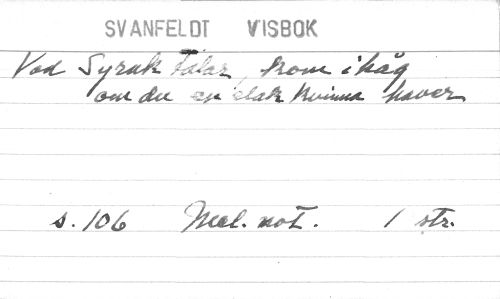 SVANFELDT VISBOK
Vad Syrak talar, kom ihåg
om du en elak kvinna haver
s. 106 Mel. not. 1 str.